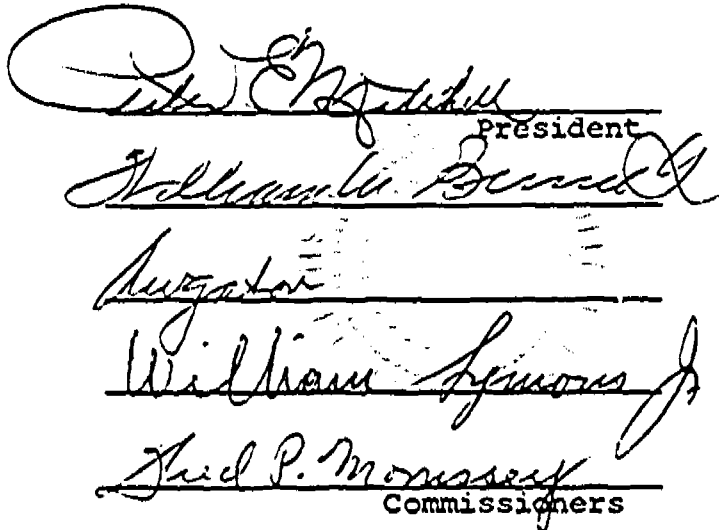 Peter E. Mitchell
President
William M. Bennett
Gatov
William Symons Jr
Fred P. Morrissey
Commissioners